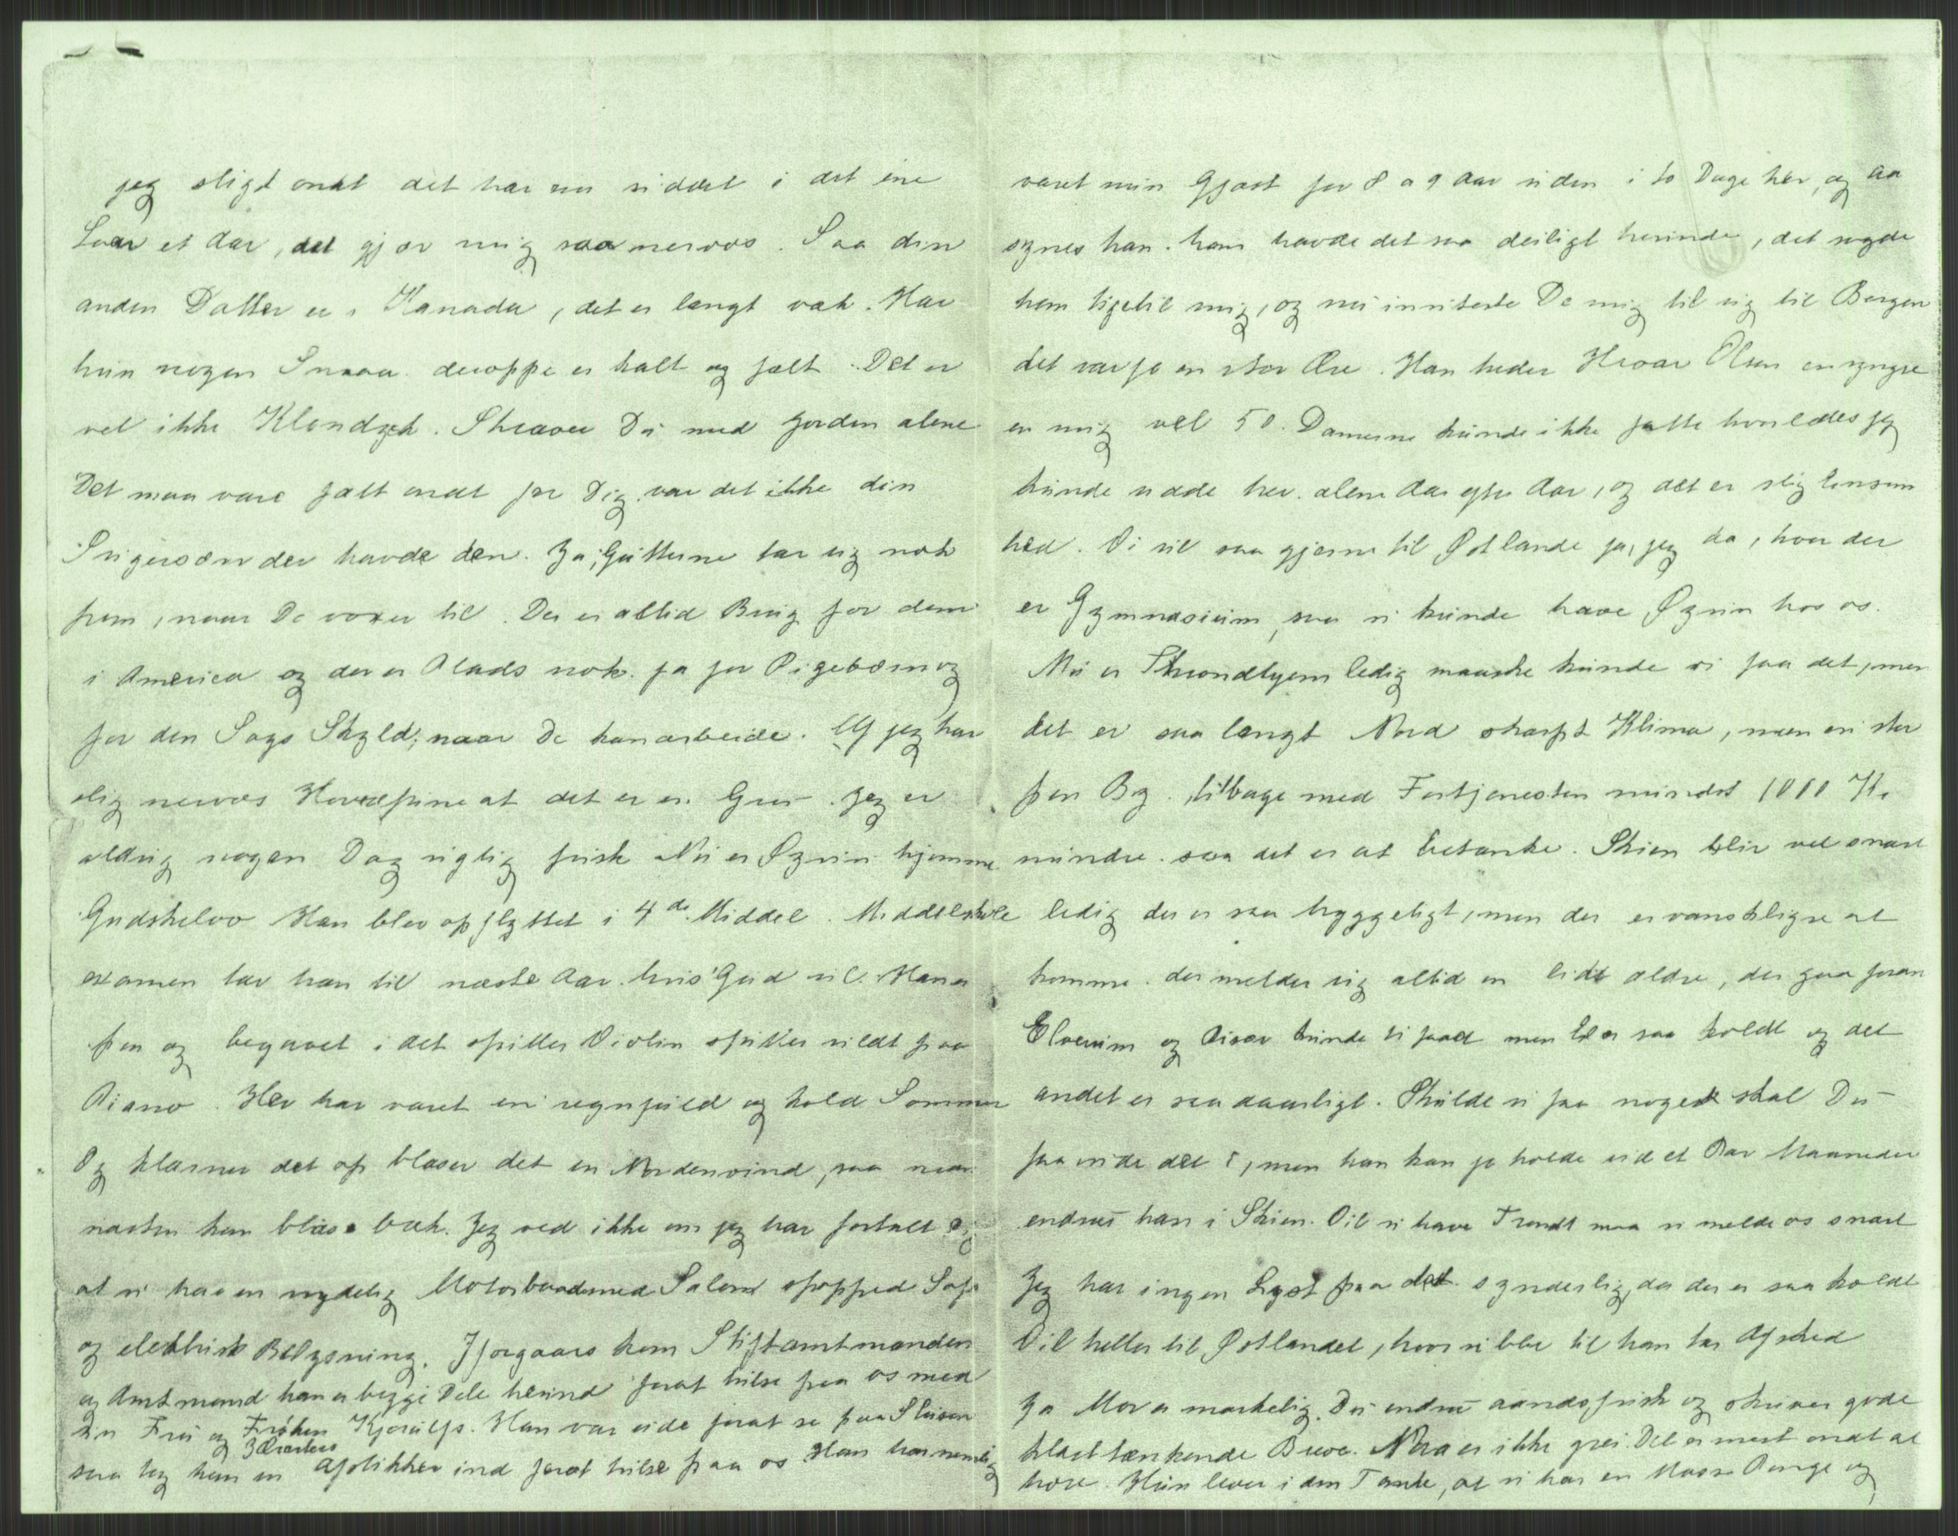 jeg sligt ondt det har nu siddet i det ene
Laar et Aar, det gjør mig saa nervøs. Saa din
anden Datter er i Kanada, det er langt væk. Har
hun nogen Smaa. deroppe er kalt og fælt. Det er
vel ikke Klondyck. Stræver Du med Jorden alene
Det maa være fælt ondt for Dig, var det ikke din
Svigersøn der havde den. Ja, Gutterne tar sig nok
frem, naar De voxer til. Der er altid Brug for dem
i America og der er Plads nok. ja for Pigebørn og
for den Sags Skyld, naar De kan arbeide. Uf jeg har
slig nervøs Hovedpine at det er en Gru. Jeg er
aldrig nogen Dag rigtig frisk Nu er Øyvin hjemme
Gudskelov Han blev opflyttet i 4de Middel. Middelskole
examen tar han til næste Aar. hvis Gud vil. Han er
pen og begavet i det spiller Violin spiller vildt paa
Piano. Her har været en regnfuld og kold Sommer
Og klarner det op blaser det en Nordenvind, saa man
næsten kan blæse væk. Jeg ved ikke om jeg har fortalt Dig
at vi har en nydelig Motorbaad med Salon opstopped Sofa
og electrisk Belysning. Iforgaars kom Stiftamtmanden
og Amtmand han er begge Dele herind forat hilse paa os med
sin Frue og Frøken Kjerulf. Han var ude forat se paa Skisen
saa tog han en Apothiker ind forat hilse paa os Han har nemlig
været min Gjæst for 8 a 9 Aar siden i to Dage her, og aa
synes han. han havde det saa deiligt herinde, det sagde
han ligetil mig, og nu inviterte De mig til sig til Bergen
det var jo en stor Ære. Han heder Hroar Olsen en yngre
en mig vel 50. Damerne kunde ikke fatte hvorledes jeg
kunde sidde her. alene Aar efter Aar, og det er slig Ensom
hed. Vi vil saa gjerne til Østlande ja, jeg da, hvor der
er Gymnasium, saa vi kunde have Øyvin hos os.
Nu er Throndhjem ledig maaske kunde vi faa det, men
det er saa langt Nord skarpt Klima, men en stor
pen By. tilbage med Fortjenesten mindst 1000 Kr
mindre. saa det er at betænke. Skien blir vel snart
ledig der er saa hyggeligt, men der er vanskligre at
komme. der melder sig altid en lidt ældre, der gaa foran
Elverum og kunde vi faaet men det er saa koldt og det
andet er saa daarligt. Skulde vi faa noget skal Du
faa vide det, men han kan jo holde ud et Par Maaneder
endnu han i Skien. Vil vi have Trondt maa vi melde os snart
Jeg har ingen Lyst paa det synderlig, da der er saa koldt
Vil heller til Østlandet, hvor vi blir til han tar Afsked
Ja Mor er mærkelig. Du endnu aandsfrisk og skriver gode
klart tænkende Breve. Nora er ikke grei. Det er mest ondt at
høre. Hun lever i den Tanke, at vi har en Masse Penge og